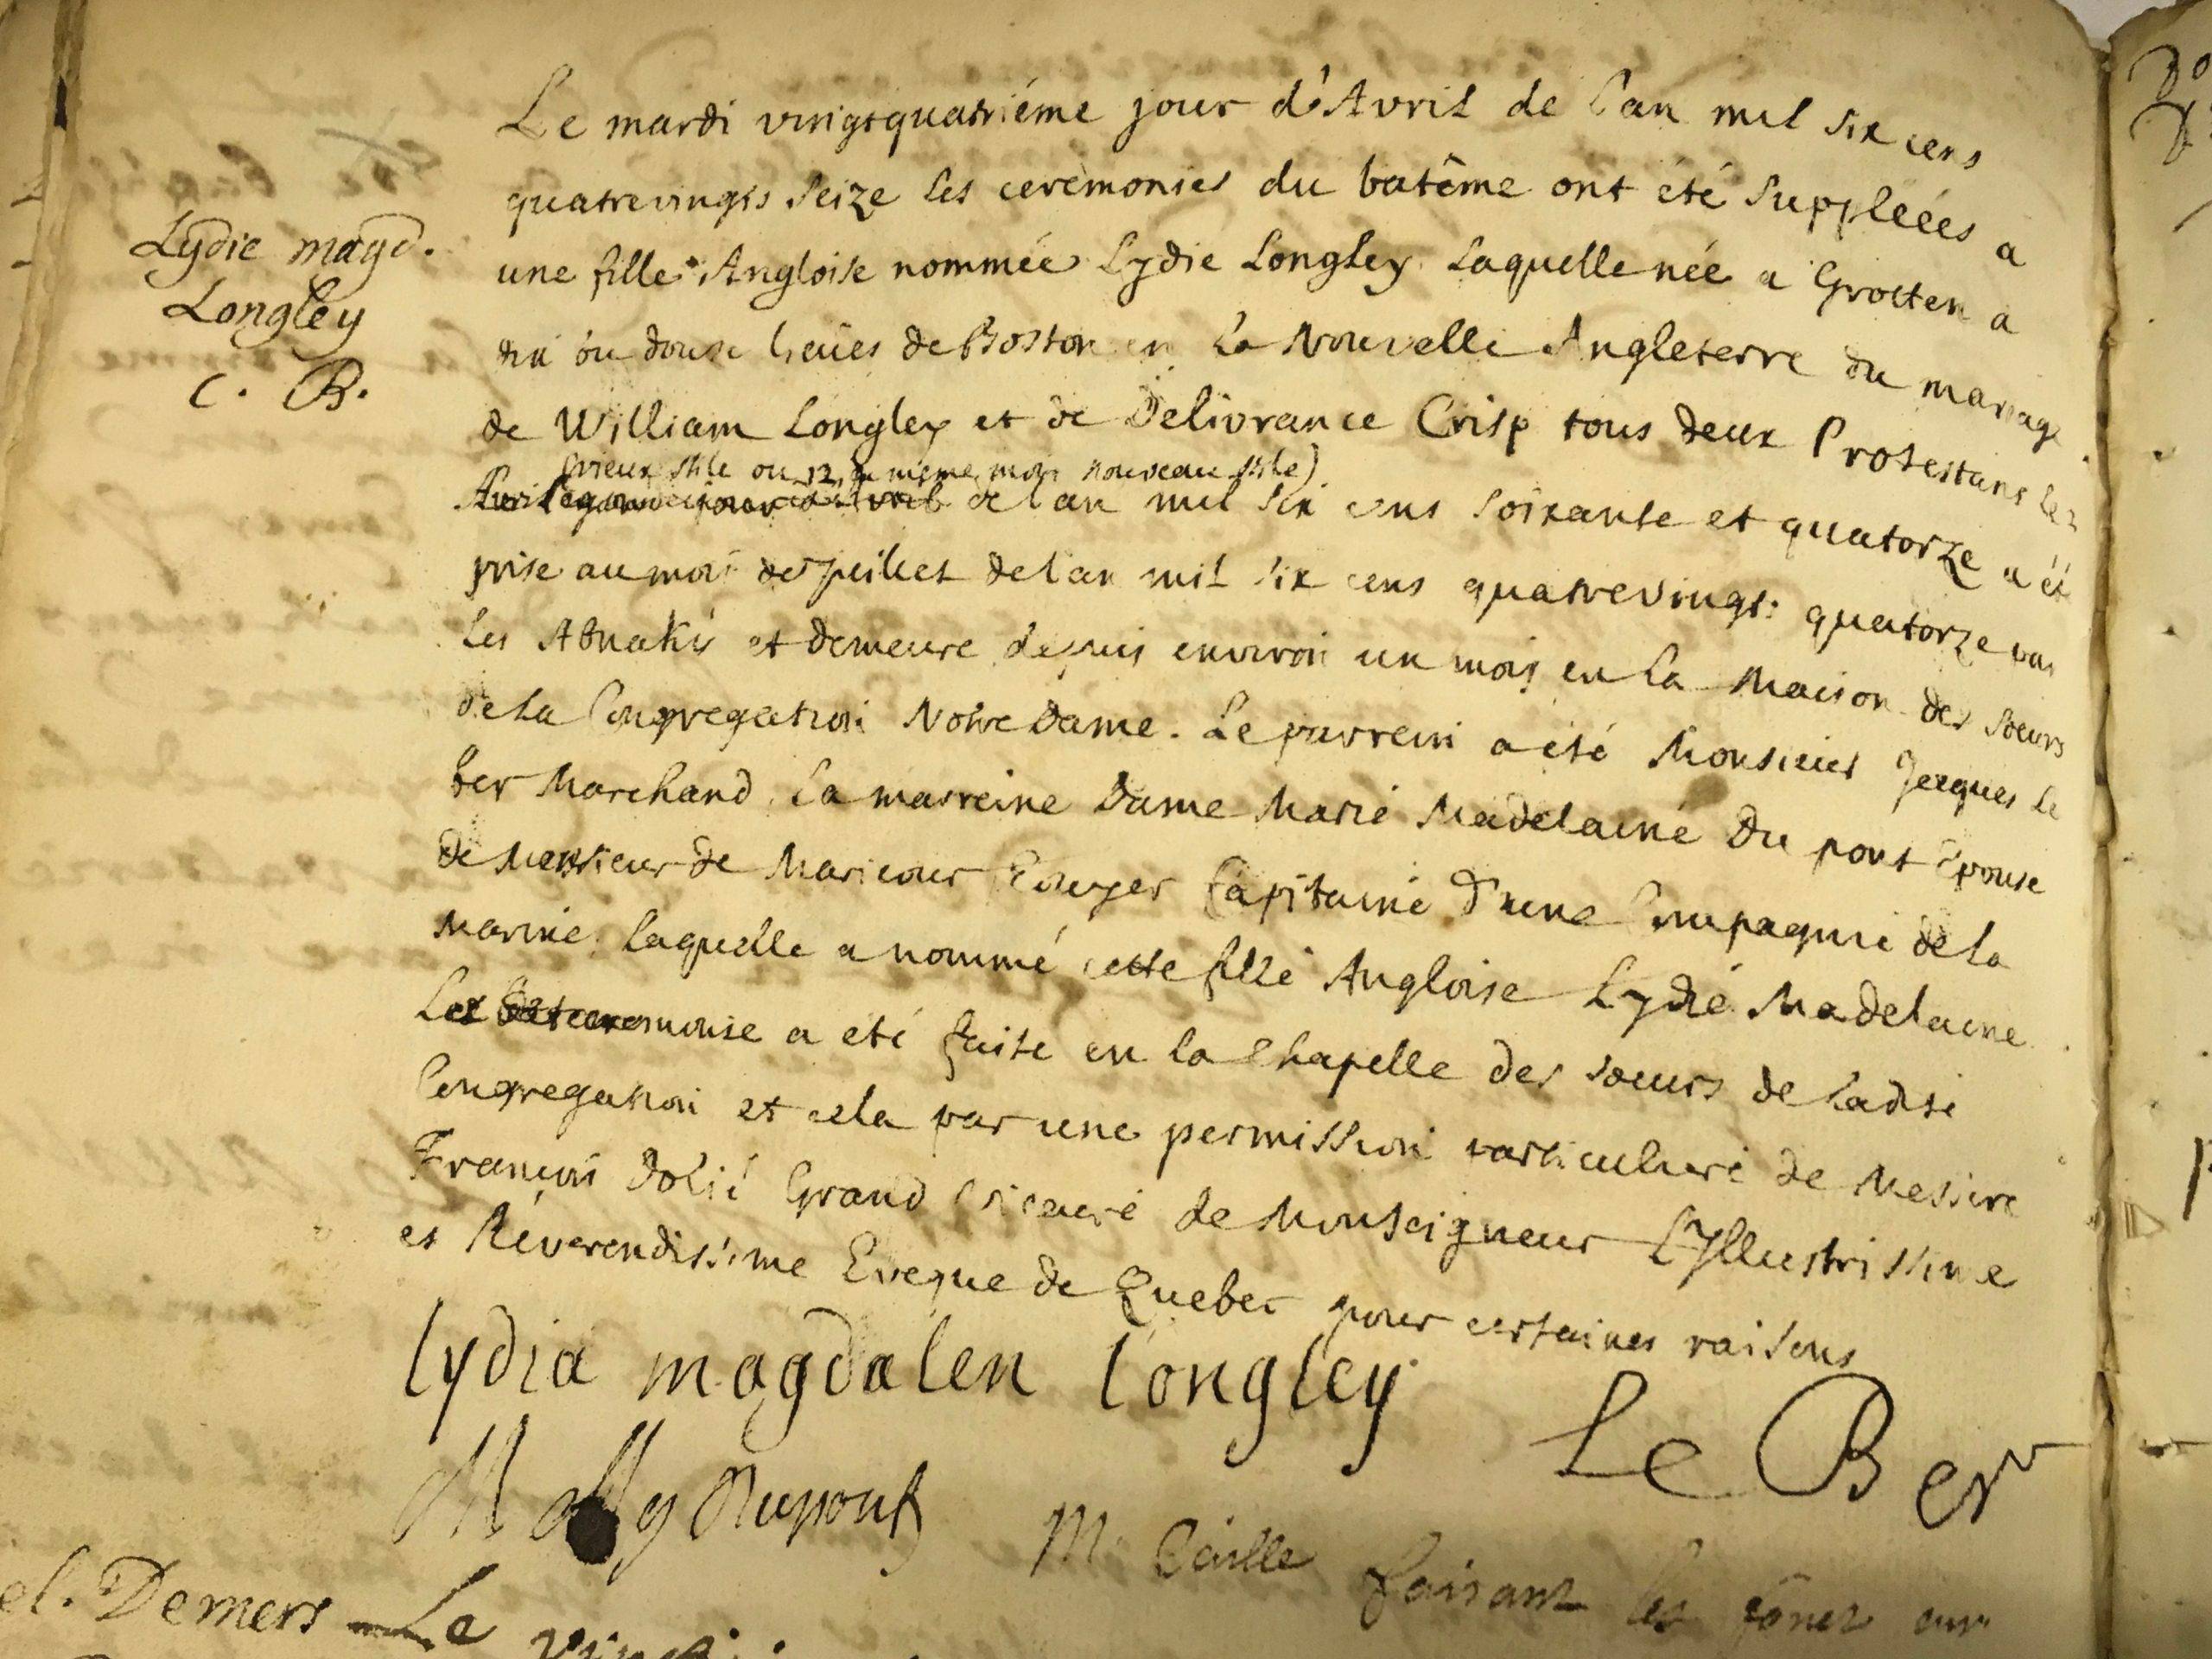 Lydie magd.
Longley
C. B.
Le mardi vingtquatriéme jour d'Avril de l'an mil six cens
quatrevingts seize les ceremonies du batême ont été suppleées a
une fille Angloise nommée Lydie Longley laquelle née a Grotten a
dix ou douze lieües de Boston en la Nouvelle Angleterre du mariage
de William Longley et de Delivrance Crisp tous deux Protestans le
(vieux stile ou 12 du même mois nouveau stile)
Avril de l'an mil six cens soixante et quatorze a été
prise au mois de Juillet de l'an mil six cens quatrevingt quatorze par
les Abnakis et demeure depuis environ un mois en la Maison des soeurs
de la Congregation Notre Dame. Le parrein a été Monsieur Jacques le
ber Marchand. La marreine Dame Marie Madelaine Du pont Epouse
de Monsieur de Maricour Ecuyer Capitaine d'une Compagnie de la
marine laquelle a nommé cette fille Angloise Lydie Madelaine
La ceremonie a eté faite en la Chapelle des soeurs de ladite
Congregation et cela par une permission particuliere de Messire
François Dolié Grand Vicaire de Monseigneur L'Yllustrissime
et Réverendissime Eveque de Quebec pour certaines raisons
lydia magdalen longley
Le Ber
M Mg Dupont
M. Caille faisant les fōnct cur
el. Demers Le